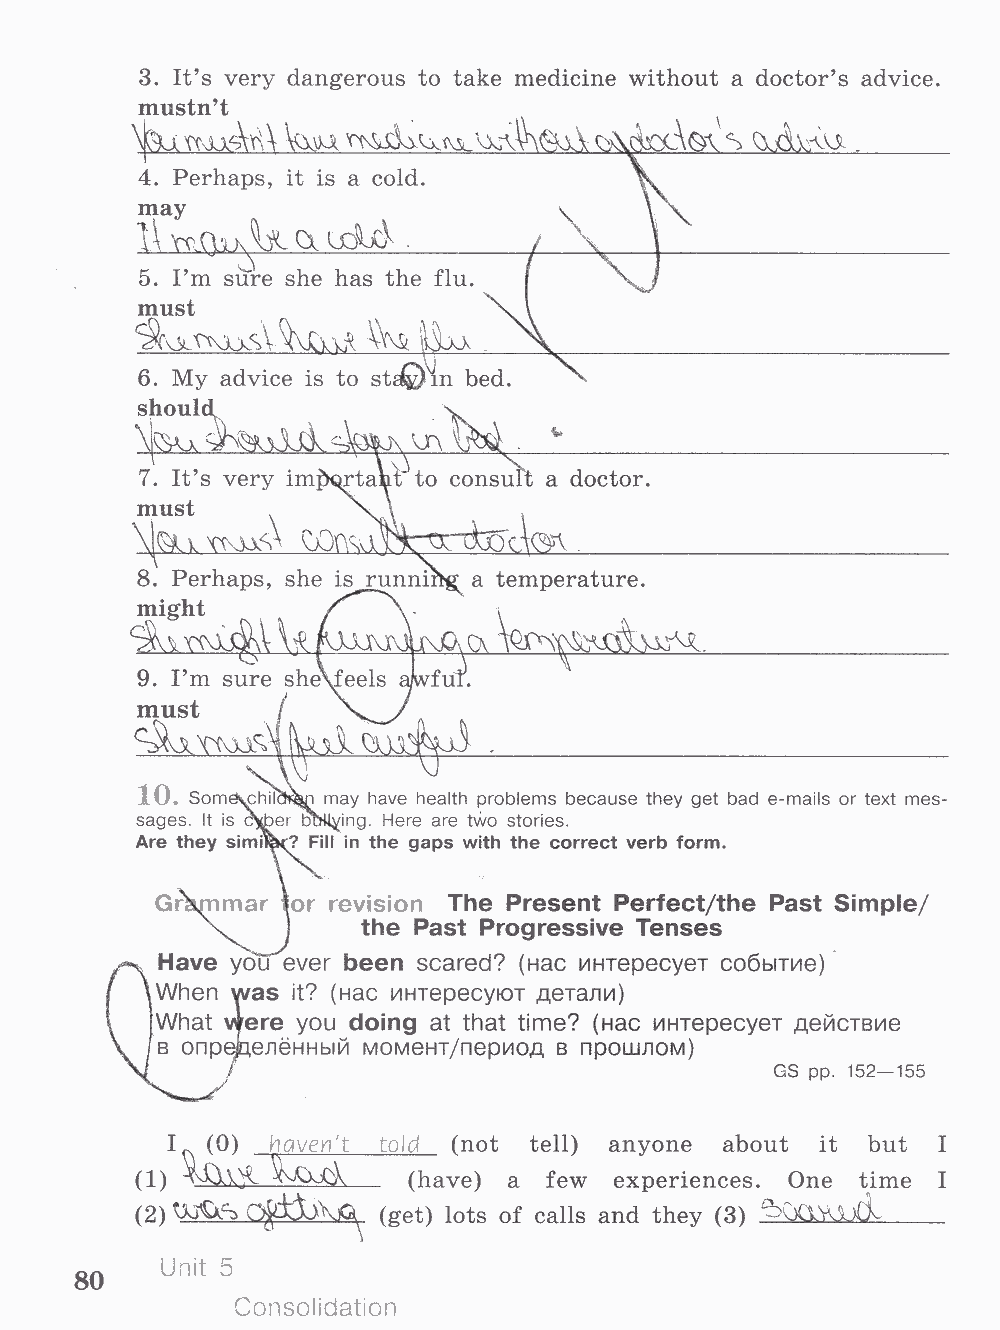 3. It's very dangerous to take medicine without a doctor's advice.
mustn't
You mustn't take medicine without a doctor's advice.
4. Perhaps, it is a cold.
may
It may be a cold.
5. I'm sure she has the flu.
must
She must have the flu.
6. My advice is to stay in bed.
should
You should stay in bed.
7. It's very important to consult a doctor.
must
You must consult a doctor.
8. Perhaps, she is running a temperature.
might
She might be running a temperature.
9. I'm sure she feels awful.
must
She must feel awful.
10. Some children may have health problems because they get bad e-mails or text mes-
sages. It is cyber bullying. Here are two stories.
Are they similar? Fill in the gaps with the correct verb form.
Grammar for revision The Present Perfect/the Past Simple/
the Past Progressive Tenses
Have you ever been scared? (нас интересует событие)
When was it? (нас интересуют детали)
What were you doing at that time? (нас интересует действие
в определённый момент/период в прошлом)
GS pp. 152—155
I (0) haven't told (not tell) anyone about it but I
(1) have had (have) a few experiences. One time I
(2) was getting (get) lots of calls and they (3) scared
80
Unit 5
Consolidation